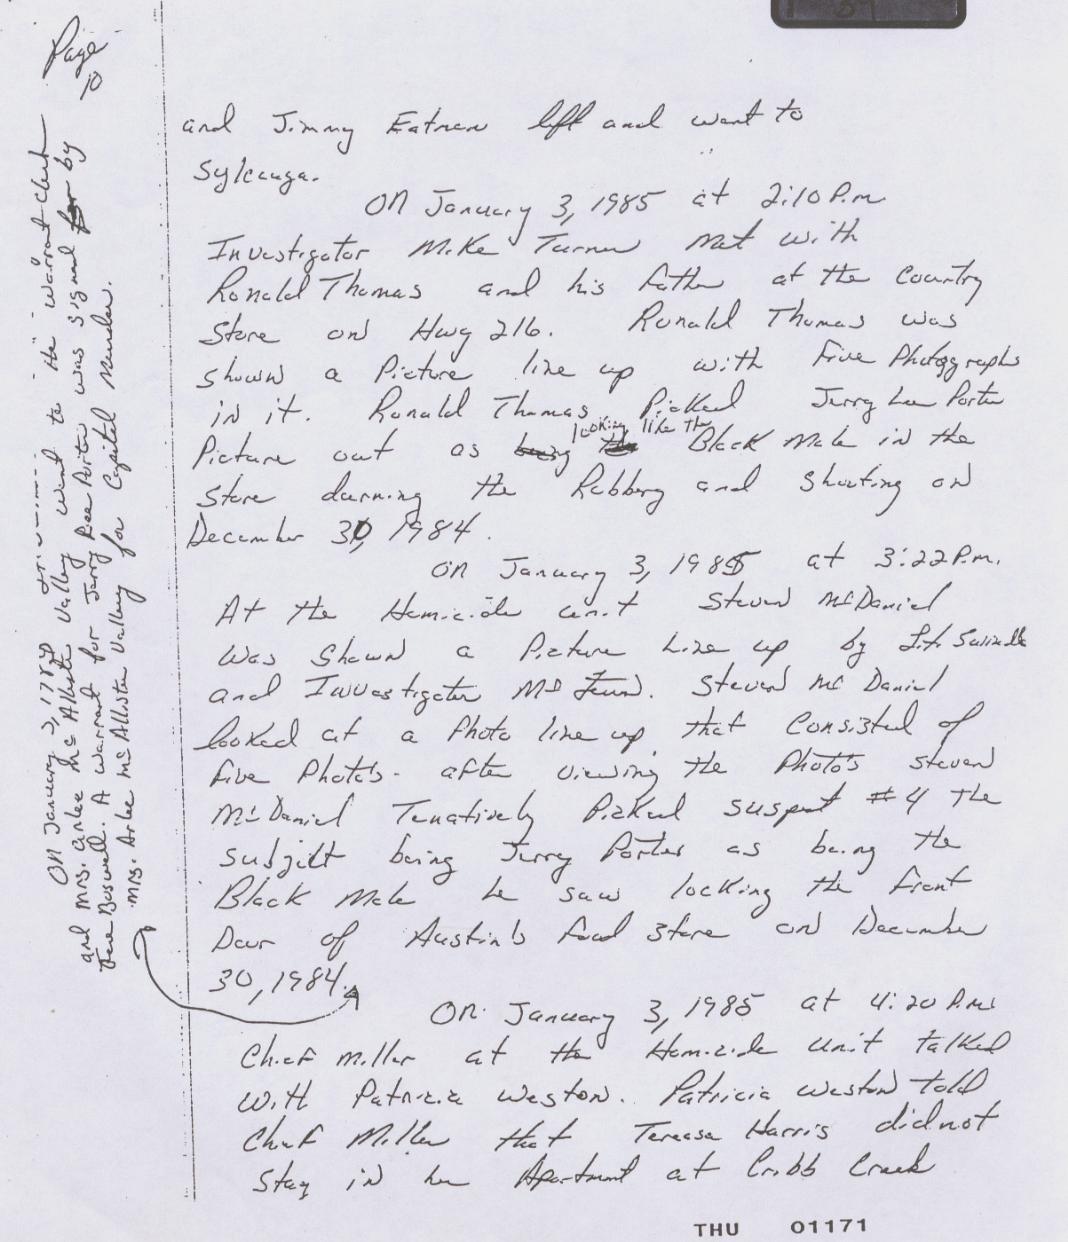 Page
10
and Jimmy Eatmon left and went to
Sylcauga.
ON January 3, 1985 at 2:10 P.m
Investigator Mike Turner Met with
Ronald Thomas and his father at the Country
Store on Hwy 216. Ronald Thomas was
shown a Picture line up with Five Photographs
in it. Ronald Thomas Picked Jerry Lee Porter
looking like the
Picture out as being the Black Male in the
Store durning the Robbery and shooting on
December 30, 1984.
ON January 3, 1985 at 3:22 P.m.
At the Homicide unit Steven McDaniel
Was Shown a Picture Line up by Lt. Swindle
and Investigator Steven McDaniel
looked at a Photo line up, that Consisted of
five Photo's. after viewing the Photo's Steven
McDaniel Tenatively Picked suspect #4 The
subject being Jerry Porter as being the
Black Male he saw locking the front
Door of Austin's food store on December
30, 1984.
ON January 3, 1985 at 4:20 P.m.
Chief Miller at the Homicide Unit talked
With Patricia Weston. Patricia Weston told
Chief Miller that Tereasa Harris did not
Stay in her Apartment at Cribb Creek
ON January 3,
and Mrs. Arlee McAllister Vallery went to the Warrant Clerk
Boswell. A warrant for Jerry Lee Porter was signed for by
Mrs. Arlee McAllister Vallery for Capital Murder.
THU 01171